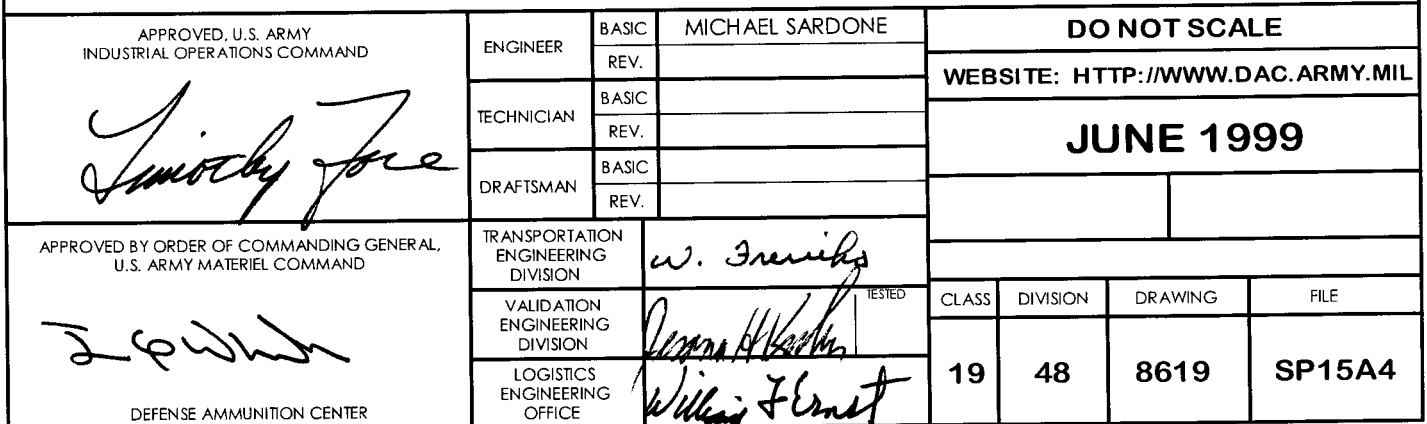 APPROVED, U.S. ARMY
INDUSTRIAL OPERATIONS COMMAND
Timothy Fore
APPROVED BY ORDER OF COMMANDING GENERAL,
U.S. ARMY MATERIEL COMMAND
DEFENSE AMMUNITION CENTER
ENGINEER
BASIC
MICHAEL SARDONE
REV.
TECHNICIAN
BASIC
REV.
DRAFTSMAN
BASIC
REV.
TRANSPORTATION
ENGINEERING
DIVISION
W. Frerichs
VALIDATION
ENGINEERING
DIVISION
TESTED
LOGISTICS
ENGINEERING
OFFICE
William F Ernst
DO NOT SCALE
WEBSITE: HTTP://WWW.DAC.ARMY.MIL
JUNE 1999
CLASS DIVISION DRAWING FILE
19 48 8619 SP15A4